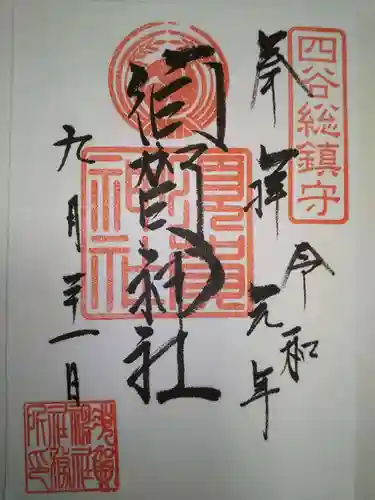 四谷総鎮守
奉拝
令和
元年
須賀神社
九月二十一日
須賀神社
須賀神社社務所印